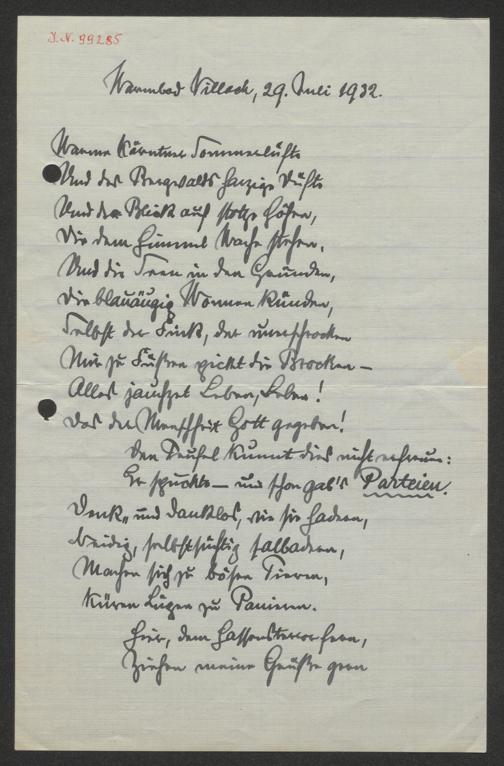 J.N. 99285
Warmbad Villach, 29. Juli 1932.
Warme Kärntner Sommerlüfte
Und des Bergwalds harzige Düfte
Und der Blick auf stolze Höhen,
Die dem Himmel Wache stehen,
Und die Seen in den Gründen,
Die blauäugig Wonnen künden,
Selbst der Fink, der unerschrocken
Mir zu Füßen pickt die Brocken –
Alles jauchzet Leben, Leben!
Das der Menschheit Gott gegeben!
Den Teufel kunnt dies nicht erfreun:
Er spuckte – und schon gab's Parteien.
Denk- und danklos, wie sie hadern,
selbstsüchtig salbadern,
Machen sich zu bösen Tieren,
Küren Lügen zu Panieren.
Hier, dem Gassenterror fern,
Ziehen meine Grüße gern